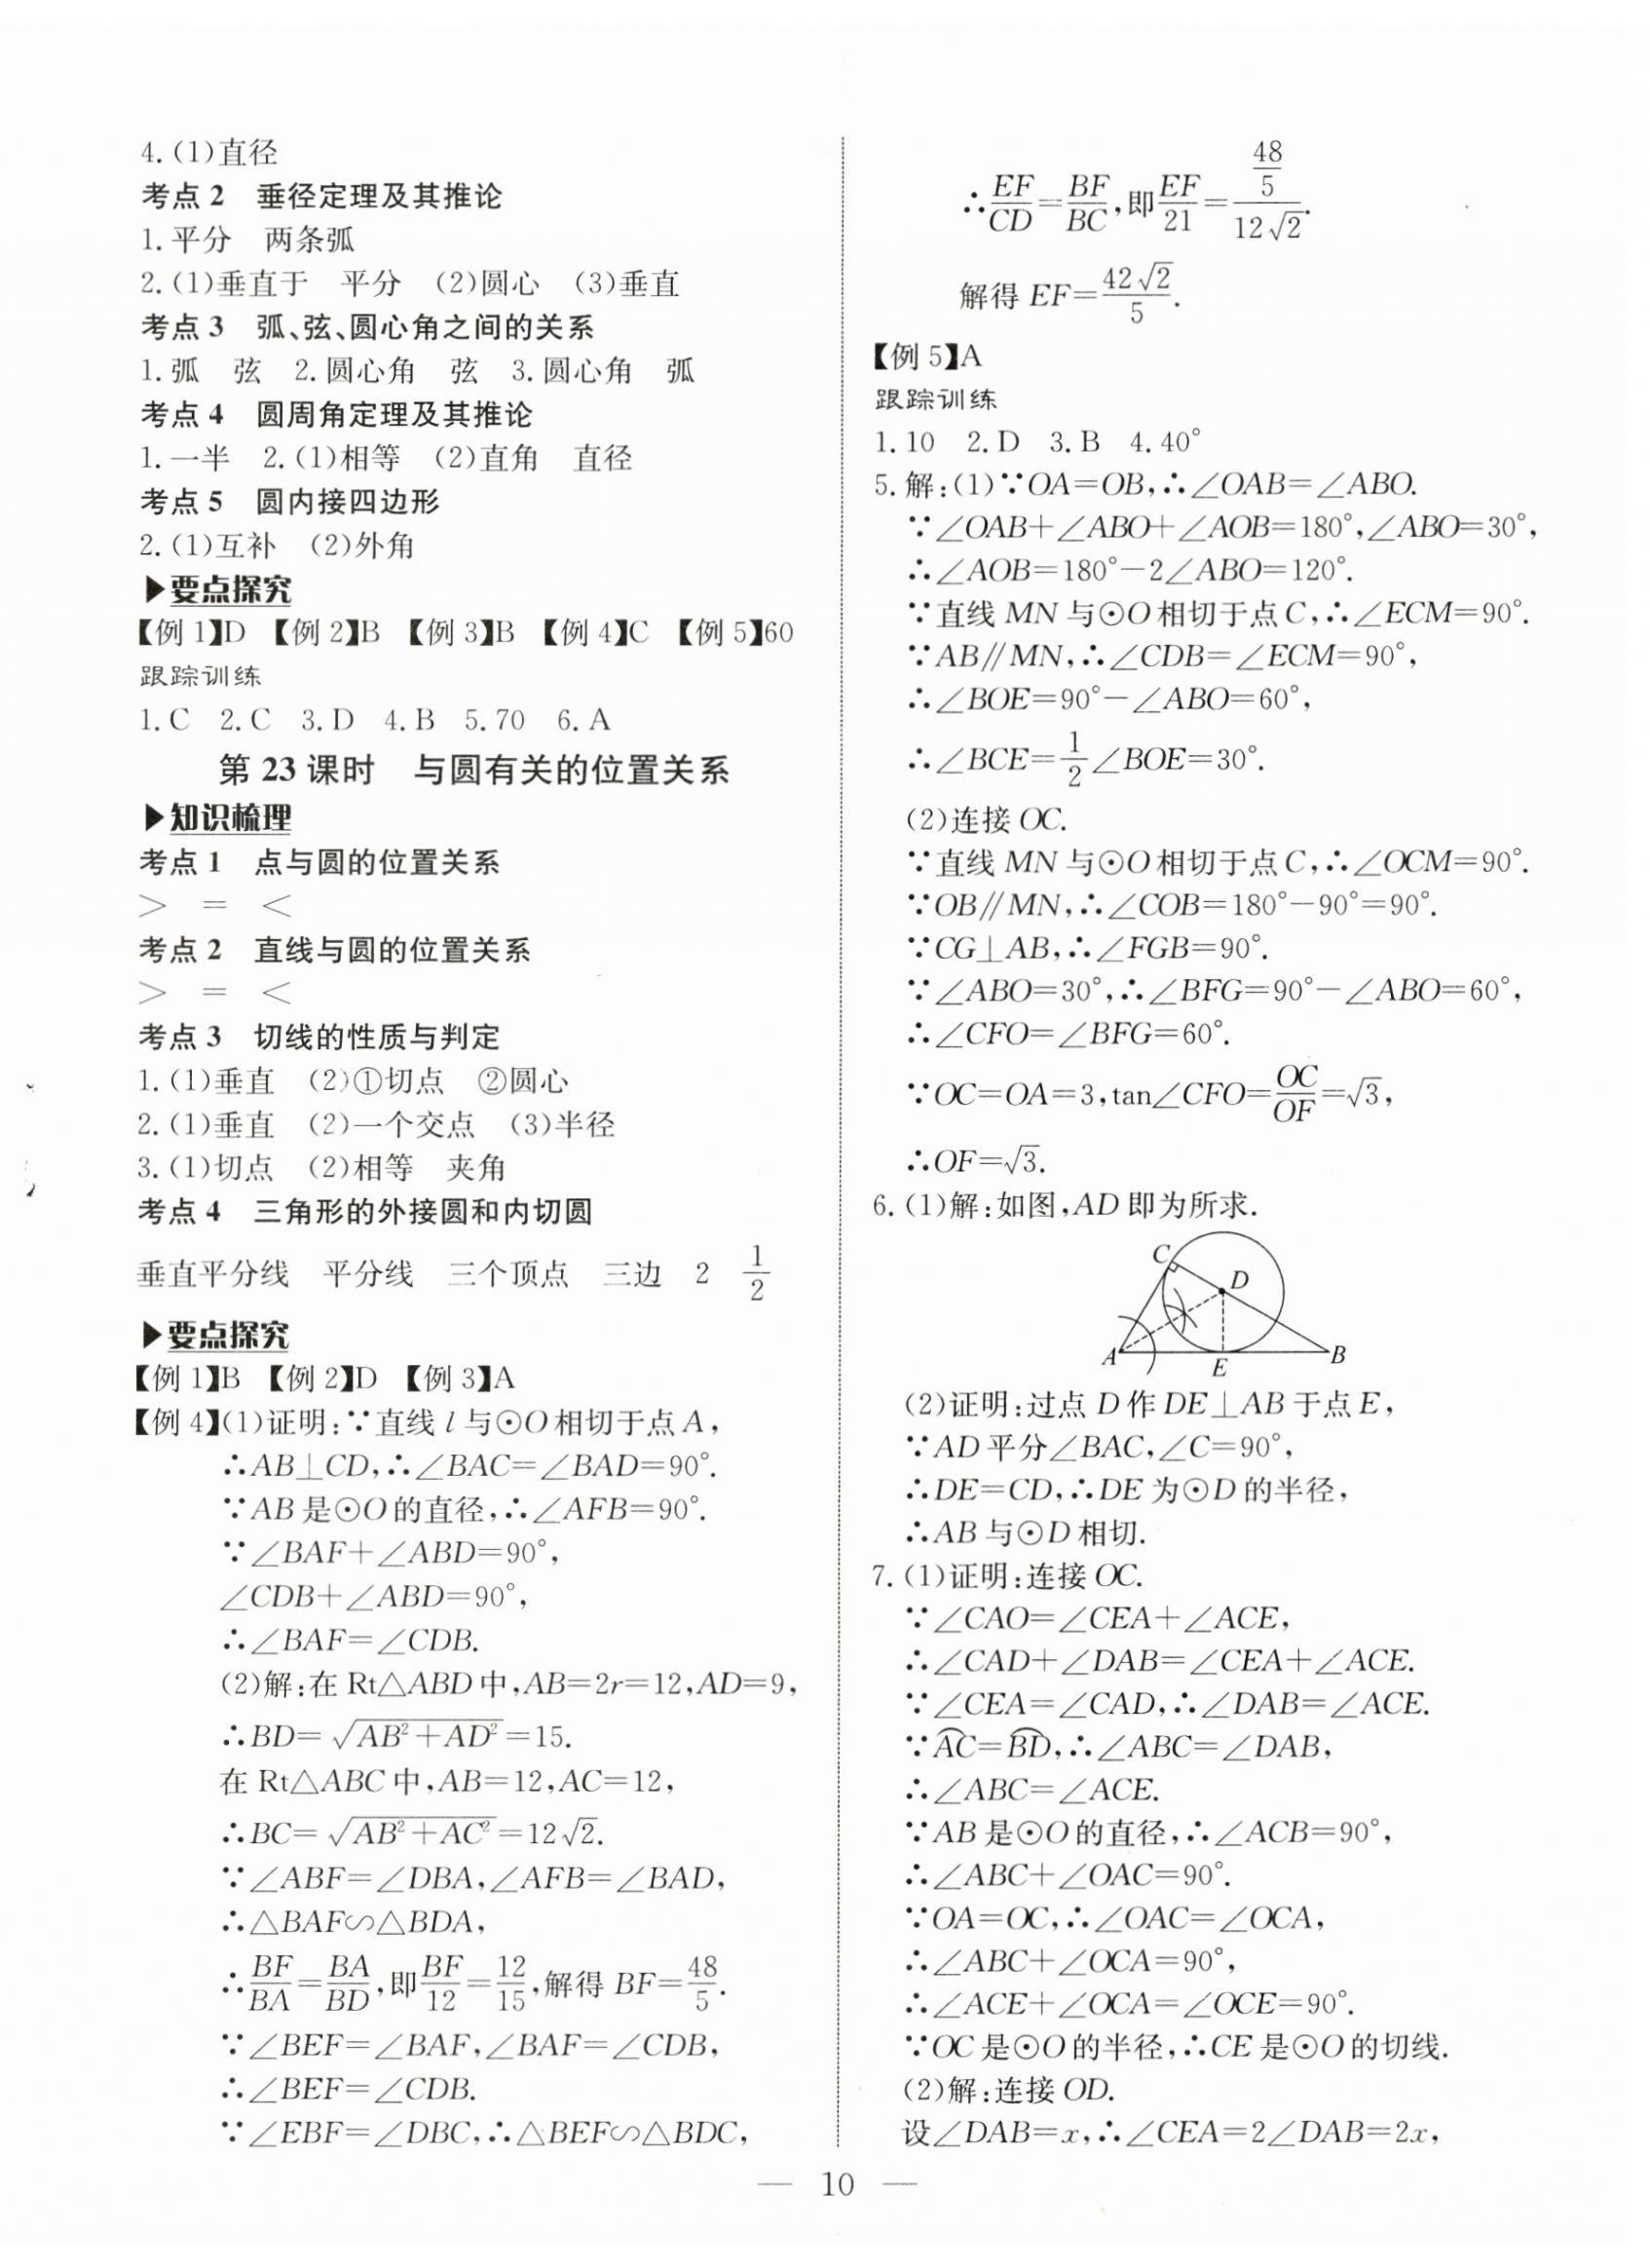 4.(1)直径
考点 2　垂径定理及其推论
1.平分　两条弧
2.(1)垂直于　平分　(2)圆心　(3)垂直
考点 3　弧、弦、圆心角之间的关系
1.弧　弦　2.圆心角　弦　3.圆心角　弧
考点 4　圆周角定理及其推论
1.一半　2.(1)相等　(2)直角　直径
考点 5　圆内接四边形
2.(1)互补　(2)外角
▶要点探究
【例 1】D 【例 2】B 【例 3】B 【例 4】C 【例 5】60
跟踪训练
1.C　2.C　3.D　4.B　5.70　6.A
第 23 课时　与圆有关的位置关系
▶知识梳理
考点 1　点与圆的位置关系
>　=　<
考点 2　直线与圆的位置关系
>　=　<
考点 3　切线的性质与判定
1.(1)垂直　(2)①切点　②圆心
2.(1)垂直　(2)一个交点　(3)半径
3.(1)切点　(2)相等　夹角
考点 4　三角形的外接圆和内切圆
垂直平分线　平分线　三个顶点　三边　2　1/2
▶要点探究
【例 1】B 【例 2】D 【例 3】A
【例 4】(1)证明:∵直线 l 与⊙O 相切于点 A,
∴AB⊥CD,∴∠BAC=∠BAD=90°.
∵AB 是⊙O 的直径,∴∠AFB=90°.
∵∠BAF+∠ABD=90°,
∠CDB+∠ABD=90°,
∴∠BAF=∠CDB.
(2)解:在 Rt△ABD 中,AB=2r=12,AD=9,
∴BD=√(AB²+AD²)=15.
在 Rt△ABC 中,AB=12,AC=12,
∴BC=√(AB²+AC²)=12√2.
∵∠ABF=∠DBA,∠AFB=∠BAD,
∴△BAF∽△BDA,
∴BF/BA=BA/BD,即BF/12=12/15,解得 BF=48/5.
∵∠BEF=∠BAF,∠BAF=∠CDB,
∴∠BEF=∠CDB.
∵∠EBF=∠DBC,∴△BEF∽△BDC,
∴EF/CD=BF/BC,即EF/21=(48/5)/(12√2).
解得 EF=42√2/5.
【例 5】A
跟踪训练
1.10　2.D　3.B　4.40°
5.解:(1)∵OA=OB,∴∠OAB=∠ABO.
∵∠OAB+∠ABO+∠AOB=180°,∠ABO=30°,
∴∠AOB=180°-2∠ABO=120°.
∵直线 MN 与⊙O 相切于点 C,∴∠ECM=90°.
∵AB∥MN,∴∠CDB=∠ECM=90°,
∴∠BOE=90°-∠ABO=60°,
∴∠BCE=1/2∠BOE=30°.
(2)连接 OC.
∵直线 MN 与⊙O 相切于点 C,∴∠OCM=90°.
∵OB∥MN,∴∠COB=180°-90°=90°.
∵CG⊥AB,∴∠FGB=90°.
∵∠ABO=30°,∴∠BFG=90°-∠ABO=60°,
∴∠CFO=∠BFG=60°.
∵OC=OA=3,tan∠CFO=OC/OF=√3,
∴OF=√3.
6.(1)解:如图,AD 即为所求.
C
D
A
E
B
(2)证明:过点 D 作 DE⊥AB 于点 E,
∵AD 平分∠BAC,∠C=90°,
∴DE=CD,∴DE 为⊙D 的半径,
∴AB 与⊙D 相切.
7.(1)证明:连接 OC.
∵∠CAO=∠CEA+∠ACE,
∴∠CAD+∠DAB=∠CEA+∠ACE.
∵∠CEA=∠CAD,∴∠DAB=∠ACE.
∵A͡C=B͡D,∴∠ABC=∠DAB,
∴∠ABC=∠ACE.
∵AB 是⊙O 的直径,∴∠ACB=90°,
∴∠ABC+∠OAC=90°.
∵OA=OC,∴∠OAC=∠OCA,
∴∠ABC+∠OCA=90°,
∴∠ACE+∠OCA=∠OCE=90°.
∵OC 是⊙O 的半径,∴CE 是⊙O 的切线.
(2)解:连接 OD.
设∠DAB=x,∴∠CEA=2∠DAB=2x,
— 10 —